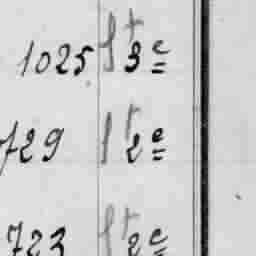 1025 St 3e
729 St 2e
723 St 2e